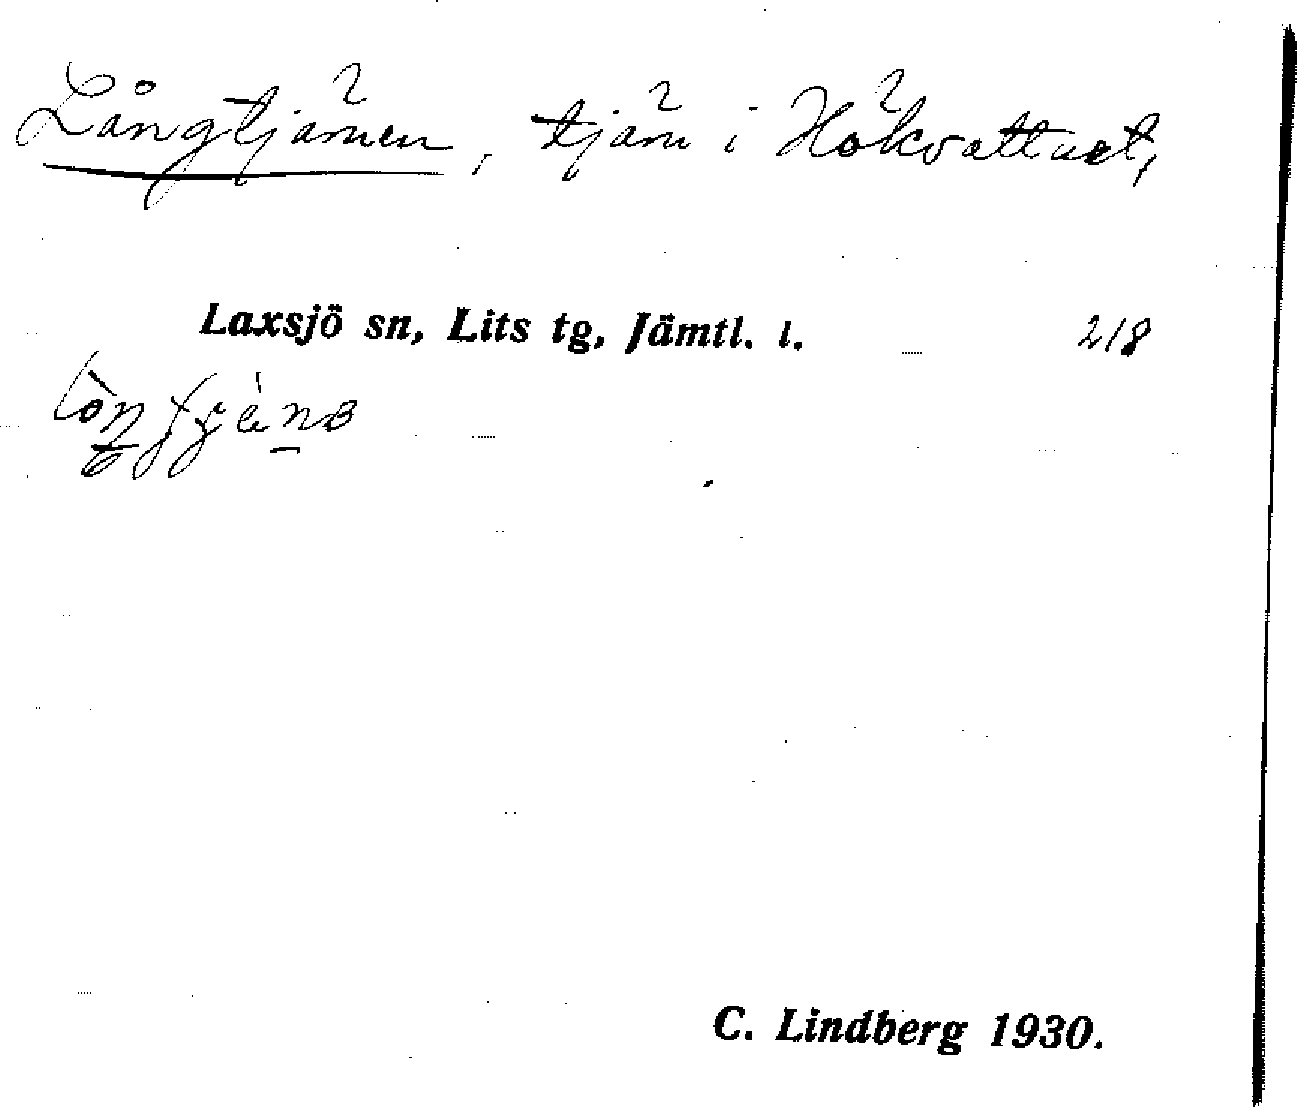 Långtjärnen, tjärn i Hökvattnet,
Laxsjö sn, Lits tg, Jämtl. l. 218
C. Lindberg 1930.